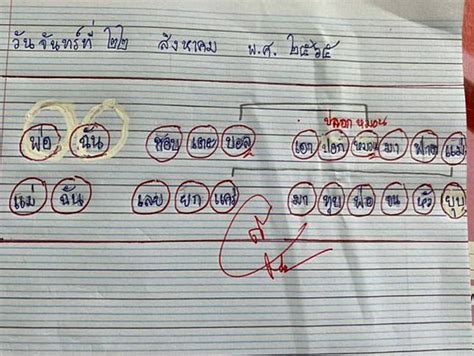 วันจันทร์ที่ ๒๒ สิงหาคม พ.ศ. ๒๕๖๕
ปลอกหมอน
พ่อ ฉัน ชอบ เตะ บอล เอา ปอก หมอน มา ฟาด แม่
แม่ ฉัน เลย ยก แคร่ มา ทุบ พ่อ จน หัว ยุบ